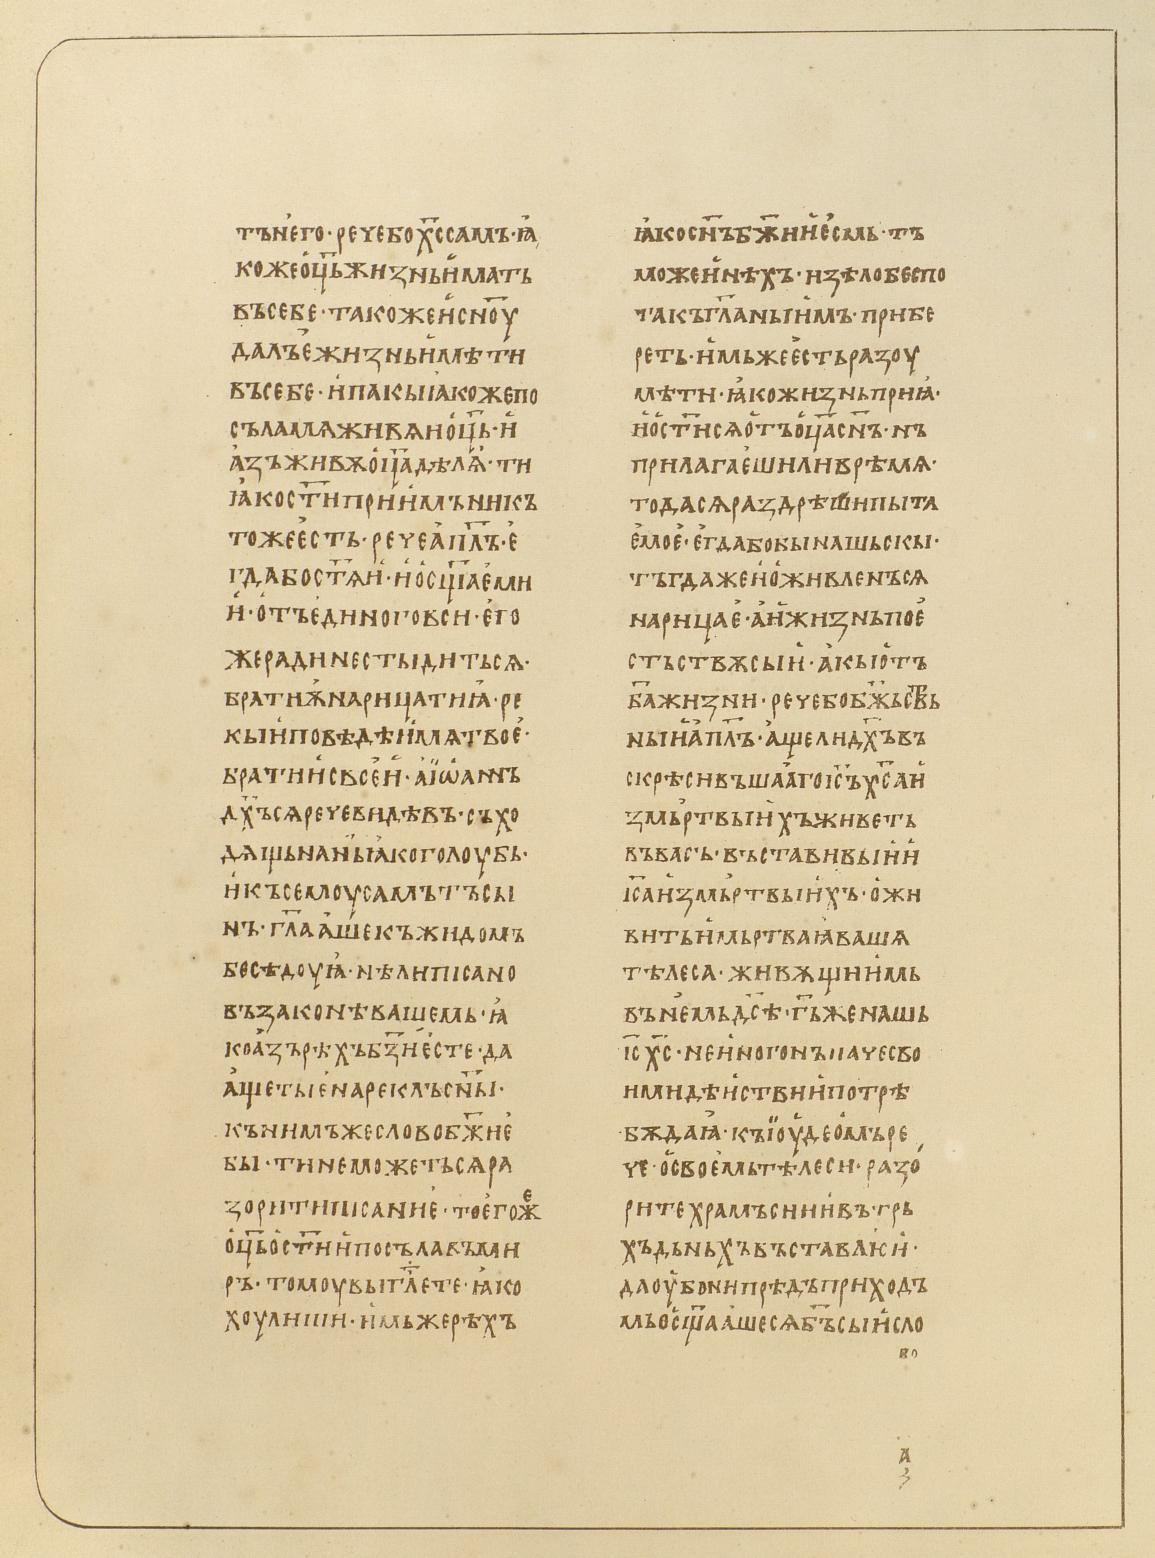 тъ н҄его· рече бо х҃с самъ· ꙗ
коже о҃ць жизнь имать
въ себе· такоже и с҃ноу
далъ е жизнь имѣти
въ себе· и пакы ꙗкоже по
съла мѧ живѧи о҃ць· и
азъ живѫ о҃ца дѣлѧ· ти
ꙗко с҃ти приимьникъ
тоже есть· рече ап҃лъ· е
гда бо с҃тѧи· и ос҃щаеми
и· отъ единого вси· его
же ради не стыдитьсѧ·
братиѭ нарицати ꙗ· ре
кыи повѣдѣ имѧ твое·
братии свсеи· а іѡанъ
д҃хъсѧ рече видѣвъ· съхо
дѧщь на нь ꙗко голоубь·
и къ семоу самътъ сы
нъ· г҃лааше къ жидомъ
бесѣдоуꙗ· нѣ ли писано
въ законѣ вашемь· ꙗ
ко азъ рѣхъ б҃зи есте· да
аще ты е нареклъ с҃ны·
къ нимъже слово б҃жие
бы· ти не можеть сѧ ра
зорити писание· то егож҃е
о҃ць ос҃ти и посъла въ ми
ръ· томоу вы г҃лете· ꙗко
хоулиши· имьже рѣхъ
ꙗко с҃нъ б҃жии есмь· тъ
може инѣхъ· и зѣло бес по
такъ г҃ланыимъ· прибе
реть· имьже есть разоу
мѣти· ꙗко жизнь приꙗ·
и ос҃ти сѧ отъ о҃ца с҃нъ· нъ
прилагаеши ли врѣмѧ·
то да сѧ раздрѣшить пыта
емое· егда бо кы нашьскы·
тъгда же и оживленъ сѧ
нарицае· аи жизнь по е
стьствѫ сыи· акы отъ
б҃а жизни· рече бо бж҃ьств҃ь
ныи ап҃лъ· аще ли д҃хъ въ
скрѣсивъшааго і҃съ х҃са и
змьртвыихъ живеть
въ васъ· въставивыи и
і҃са измьртвыихъ· ожи
вить и мьртваꙗ ваша
тѣлеса· живѫщиимь
въ немь д҃сѣ· г҃ь же нашь
і҃с х҃с· не иного нъ паче сво
ими дѣиствии потрѣ
бѫдаꙗ· къ їоудеомъ ре
че· о своемь тѣлеси· разо
рите храмъ сии и въ· грь
хъ дьньхъ въставлѭ и·
да оубо ни прѣдъ приходъ
мь ос҃щааше сѧ б҃ъ сыи сло
во
а
з